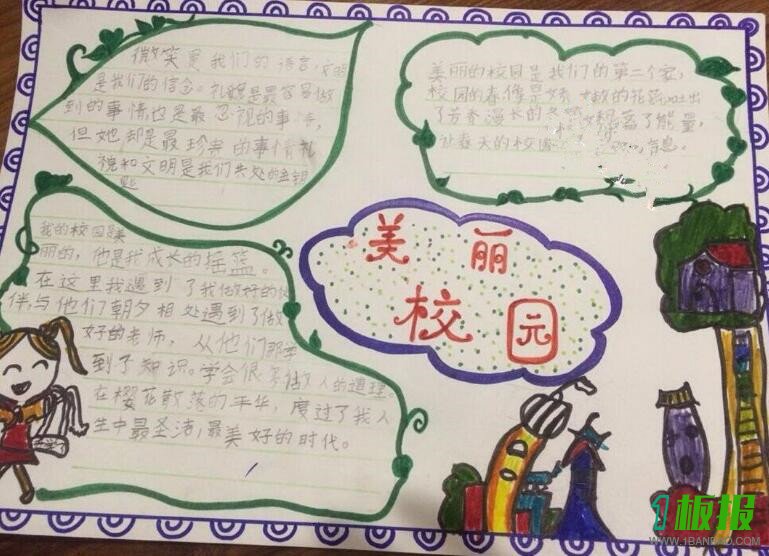 微笑是我们的语言,文明
是我们的信念。礼貌是最容易做
到的事情,也是最忽视的事情,
但她却是最珍贵的事情礼
貌和文明是我们共处的金钥
匙
美丽的校园是我们的第二个家,
校园的春像是娇嫩的花蕊,吐出
了芳香漫长的冬 蓄了能量,
让春天的校园 息。
美丽
校园
我的校园是美
丽的,他是我成长的摇篮。
在这里我遇到了我做好的伙
伴,与他们朝夕相处遇到了做
好的老师,从他们那学
到了知识。学会很多做人的道理。
在樱花散落的年华,度过了我人
生中最圣洁,最美好的时代。
1板报
WWW.1BANBAO.COM